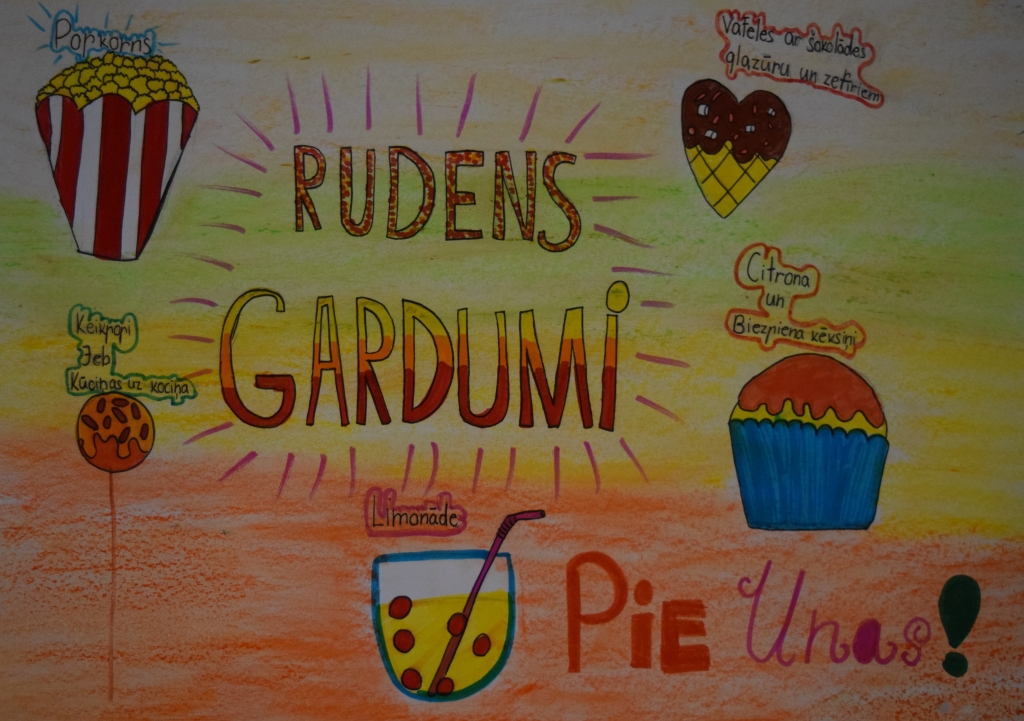 Popkorns
Vafeles ar šokolādes
glazūru un zefīriem
RUDENS
GARDUMI
Citrona
un
Biezpiena kēksiņi
Keikpopi
Jeb
Kūciņas uz kociņa
Limonāde
PiE Unas!